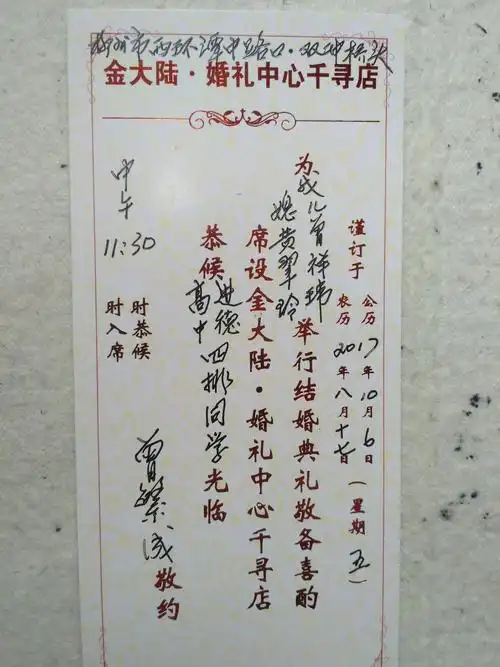 柳州市西环潭中路口·双冲桥头
金大陆·婚礼中心千寻店
谨订于
公历2017年10月6日(星期五)
农历 年八月十七日
为 儿曾祥玮
媳黄翠玲
举行结婚典礼敬备喜酌
席设金大陆·婚礼中心千寻店
恭候进德
高中四排同学光临
曾繁成敬约
中午
11:30
时恭候
时入席